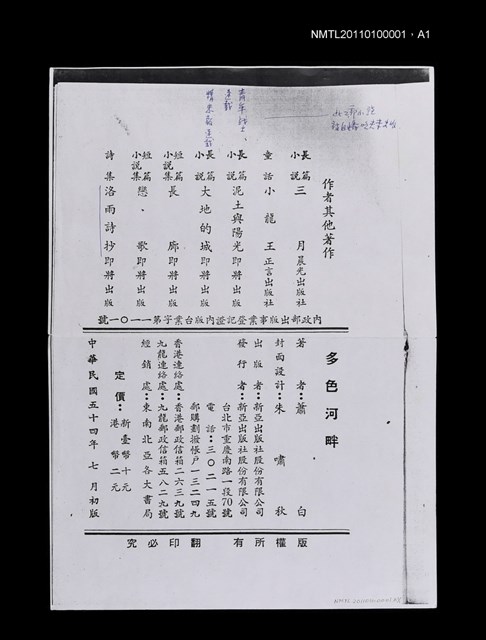 NMTL20110100001，A1
作者其他著作
長篇小說 三月 晨光出版社
童話 小龍王 正言出版社
長篇小說 泥土與陽光 即將出版
長篇小說 大地的城 即將出版
短篇小說集 長廊 即將出版
短篇小說集 戀、歌 即將出版
詩集 洛雨詩抄 即將出版
內政部出版事業登記證內版台業字第一一〇一號
多色河畔
著者：蕭白
封面設計：朱嘯秋
出版者：新亞出版社股份有限公司
發行者：新亞出版社股份有限公司
台北市重慶南路一段70號
電話：三〇二一五號
郵購劃撥帳戶一三二四九
香港連絡處：香港郵政信箱二六三九號
九龍連絡處：九龍郵政信箱五八二九號
經銷處：東南北亞各大書局
定價：新臺幣十元
港幣二元
中華民國五十四年七月初版
版權所有 翻印必究
NMTL20110100001,A1